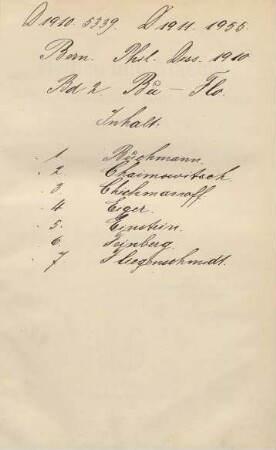 D 1910. 5339. D 1911. 1955.
Bern. Phil. Diss. 1910
Bd 2. Bü - Flo.
Inhalt.
1 Büchmann.
2. Chaimowitsch
3 Chichmanoff
4 Eiger.
5. Einstein.
6. Feinberg.
7 Fliegenschmidt.